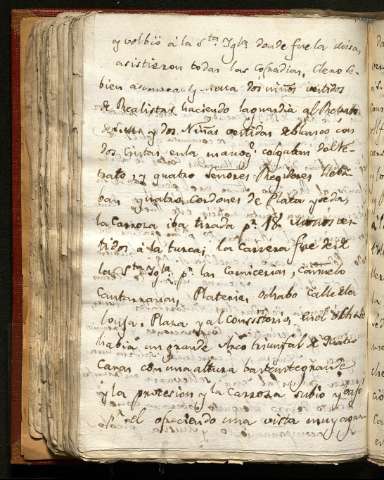 y volbió á la S.ta Ygl.a donde fue la misa,
asistieron todas las Cofradias, Clero
bien dos niños vestidos
de Realistas haciendo la guardia al Retrato
y dos Niñas vestidas de blanco con
dos Cintas en la mano q.e colgaban del Re-
trato y quatro señores Regidores lleba-
ban quatro Cordones de Plata y seda,
la Carroza iba tirada p.r 18 vesti-
dos á la turca; la Carrera fue desde
la S.ta Ygl.a p.r las Carnicerias, Caňuelo
Cantarranas, Plateria, Ochabo Calle de la
Lonja, Plaza y al Consistorio, en el Ochabo
habia un grande Arco triunfal de quatro
Caras con una altura bastante grande
y la procesion y la Carroza subió y bajó
p.r el ofreciendo una vista muy agra-